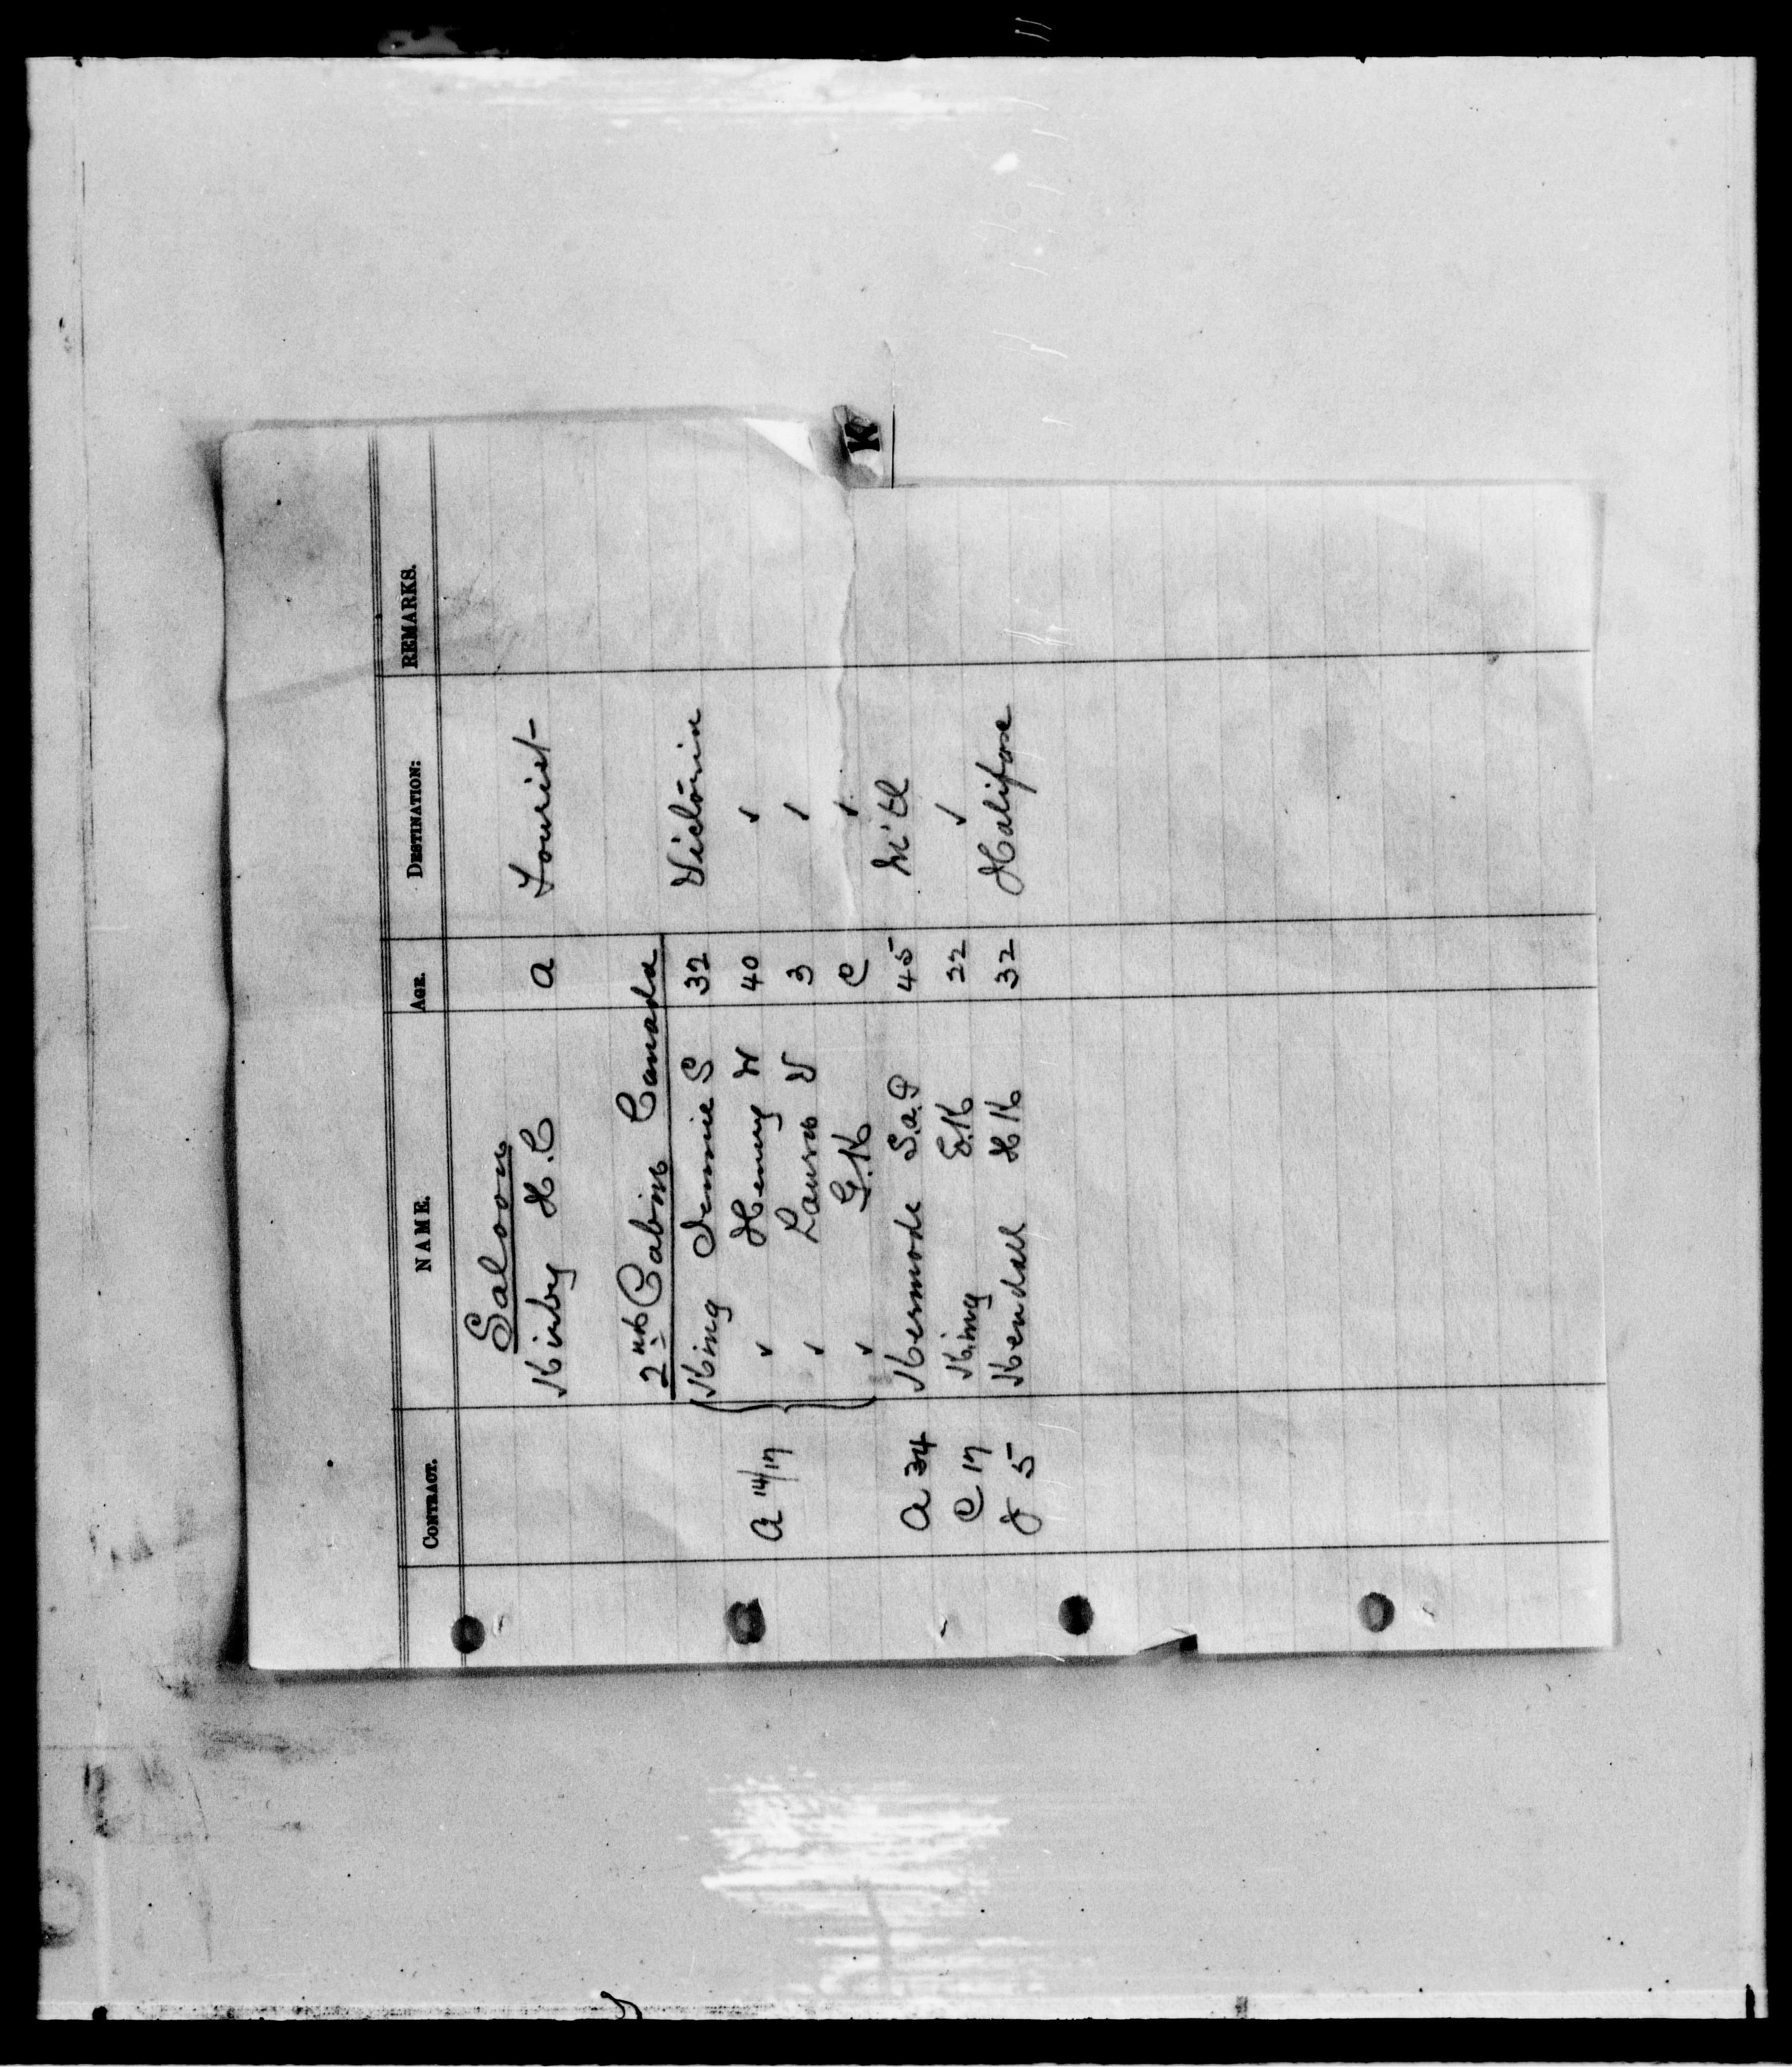 K
CONTRACT. NAME. AGE. DESTINATION: REMARKS.
Saloon
Kirby H.C a Tourist
2nd Cabin Canada
King Jennie S 32 Victoria
A 14/17 ✓ Henry W 40 ✓
✓ Laura V 3 ✓
✓ G.K C ✓
A 34 Kermode S.a.P 45 M'tl
C 17 King E.K 22 ✓
J 5 Kendall H K 32 Halifax